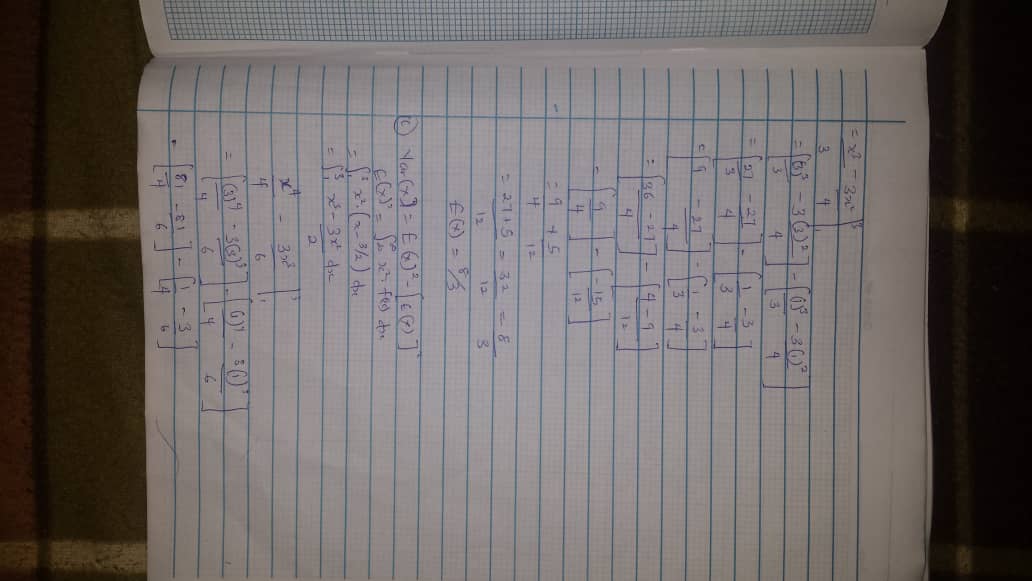 = x³/3 - 3x²/4 |³₁
= [(3)³/3 - 3(3)²/4] - [(1)³/3 - 3(1)²/4]
= [27/3 - 27/4] - [1/3 - 3/4]
= [9 - 27/4] - [1/3 - 3/4]
= [36 - 27/4] - [4 - 9/12]
= [9/4] - [-15/12]
= 9/4 + 5/12
= 27+5/12 = 32/12 = 8/3
E(x) = 8/3
c) Var(x) = E(x)² - [E(x)]²
E(x)² = ∫ x². f(x) dx
= ∫³₁ x². (x - 3/2) dx
= ∫³₁ x³ - 3x²/2 dx
x⁴/4 - 3x³/6 |³₁
= [(3)⁴/4 - 3(3)³/6] - [(1)⁴/4 - 3(1)³/6]
= [81/4 - 81/6] - [1/4 - 3/6]